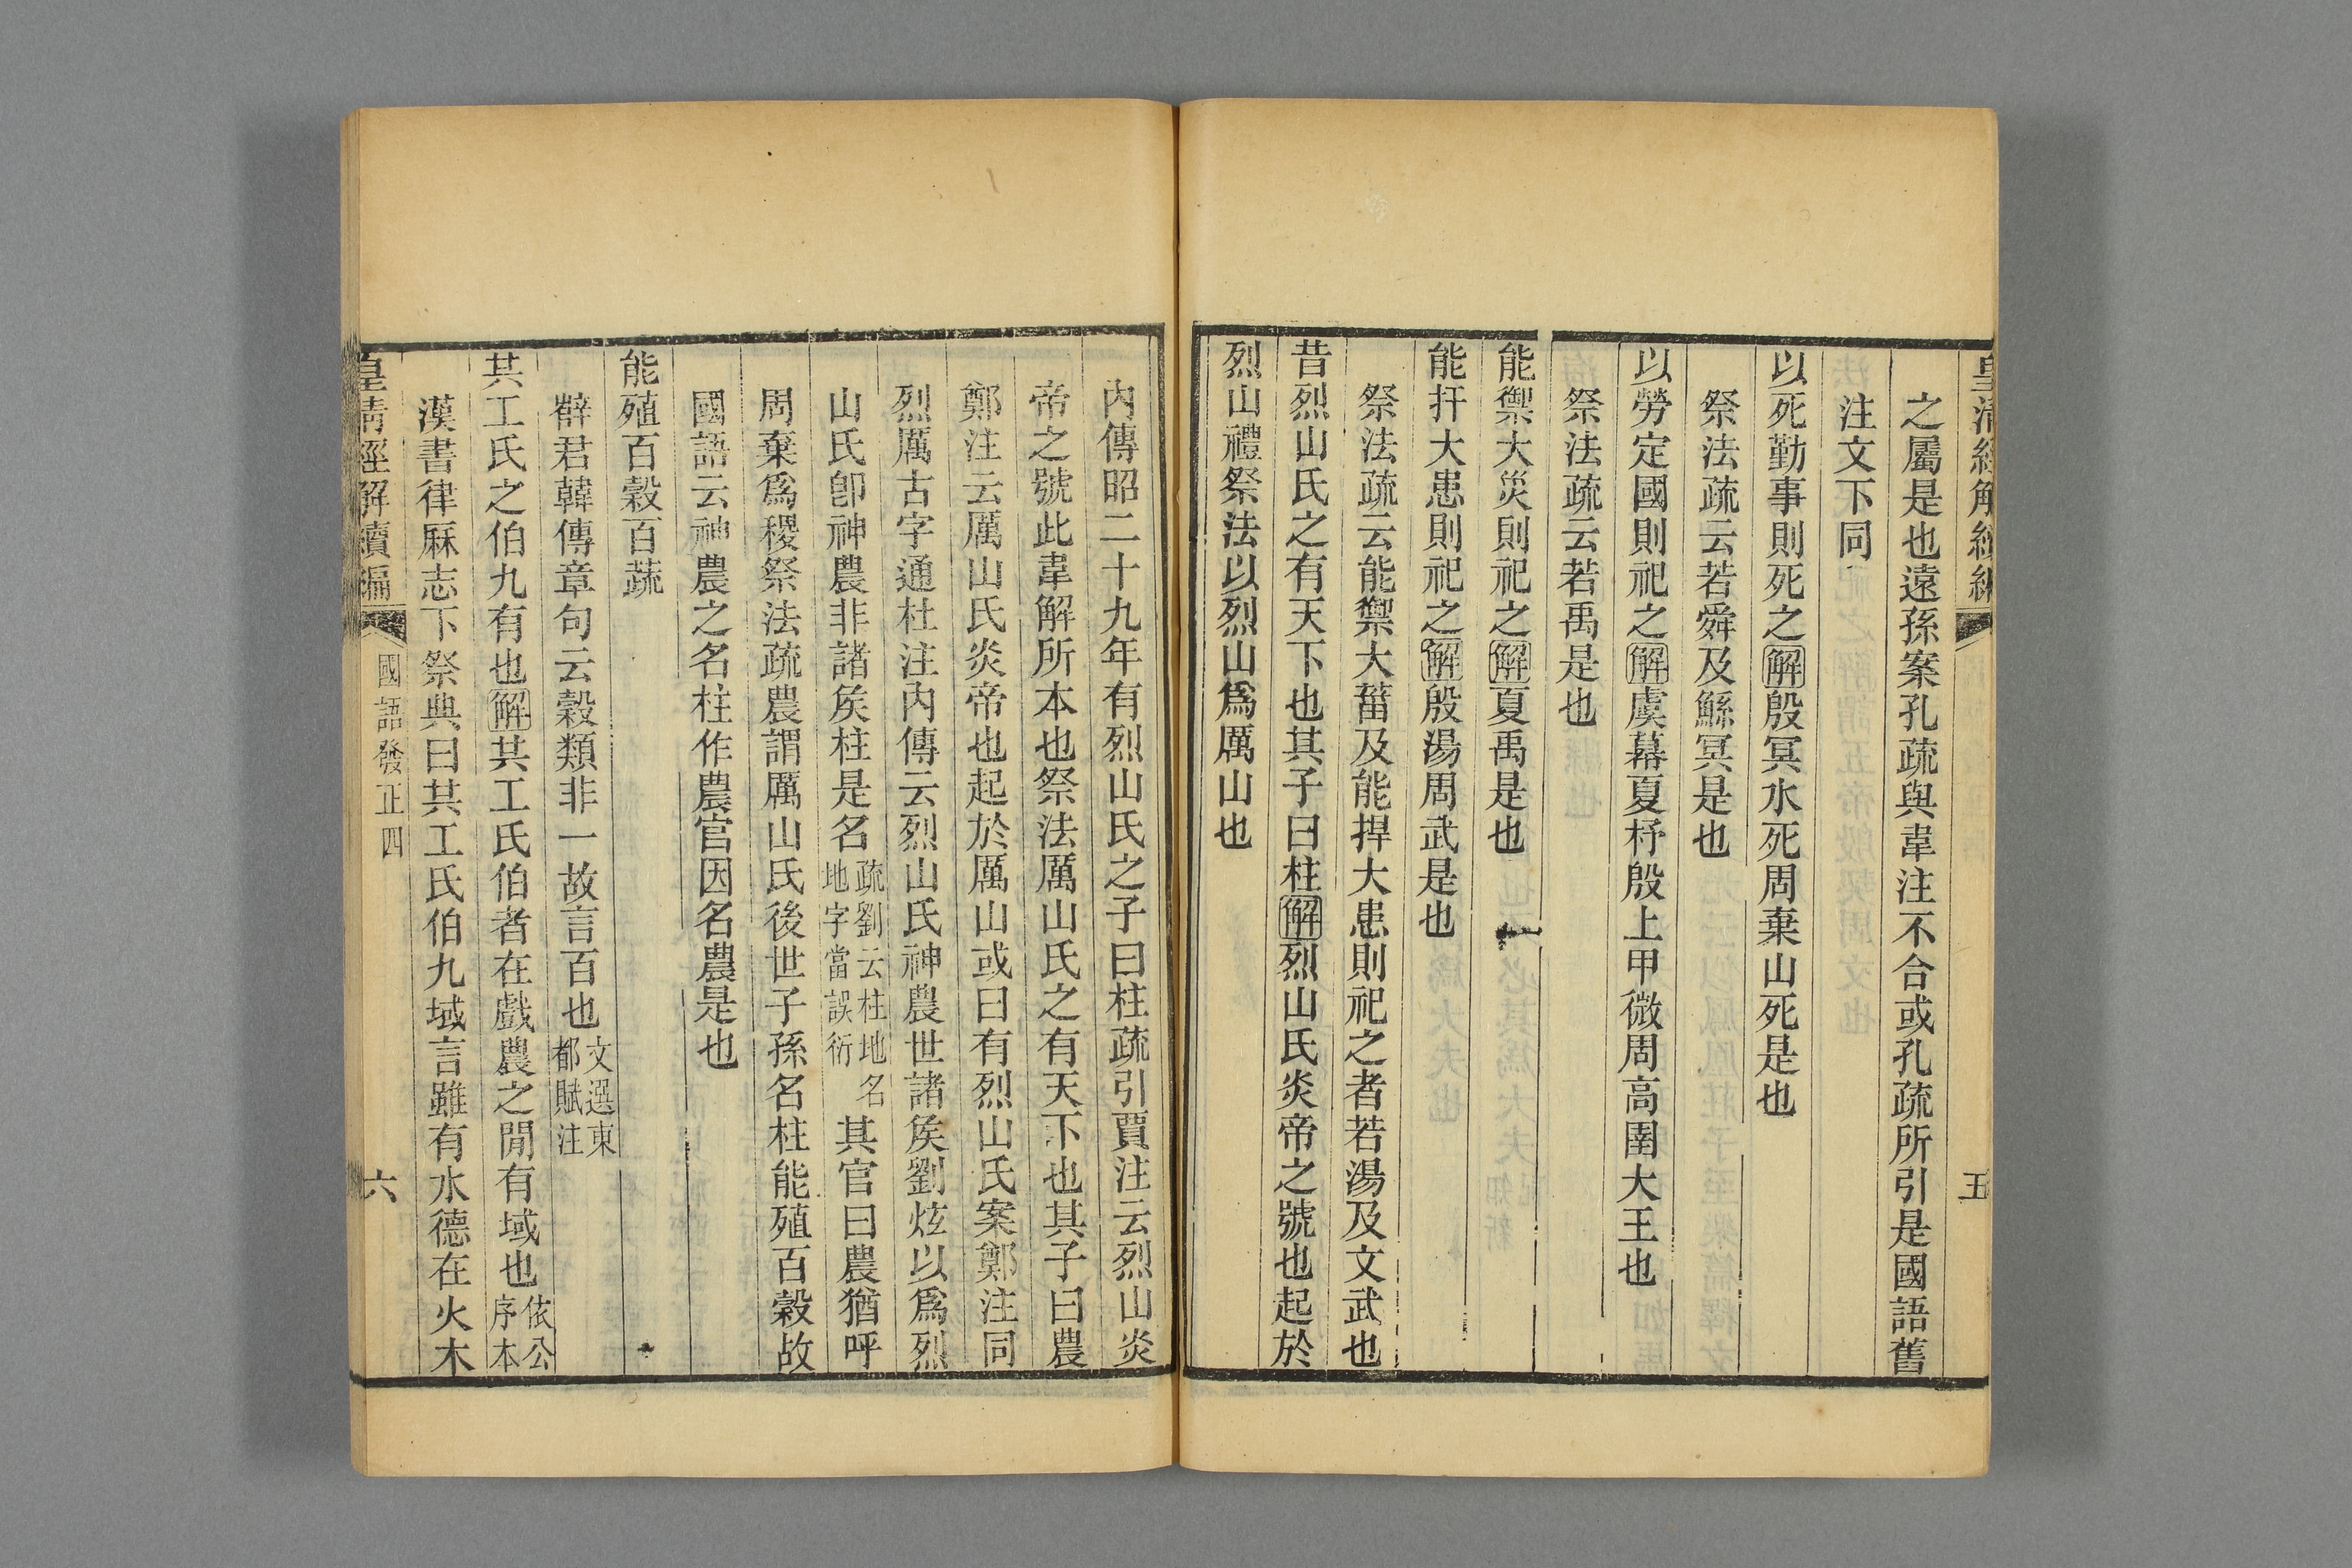 皇清經解續編
五
之屬是也遠孫案孔疏與韋注不合或孔疏所引是國語舊
注文下同
以死勤事則死之解殷冥水死周棄山死是也
祭法疏云若舜及鯀冥是也
以勞定國則祀之解虞幕夏杼殷上甲微周高圉大王也
祭法疏云若禹是也
能禦大災則祀之解夏禹是也
能扞大患則祀之解殷湯周武是也
祭法疏云能禦大菑及能捍大患則祀之者若湯及文武也
昔烈山氏之有天下也其子曰柱解烈山氏炎帝之號也起於
烈山禮祭法以烈山爲厲山也
內傳昭二十九年有烈山氏之子曰柱疏引賈注云烈山炎
帝之號此韋解所本也祭法厲山氏之有天下也其子曰農
鄭注云厲山氏炎帝也起於厲山或曰有烈山氏案鄭注同
烈厲古字通杜注內傳云烈山氏神農世諸矦劉炫以爲烈
山氏卽神農非諸矦柱是名疏劉云柱地名地字當誤衍其官曰農猶呼
周棄爲稷祭法疏農謂厲山氏後世子孫名柱能殖百穀故
國語云神農之名柱作農官因名農是也
能殖百穀百蔬
辥君韓傳章句云穀類非一故言百也文選東都賦注
共工氏之伯九有也解共工氏伯者在戲農之閒有域也依公序本
漢書律厤志下祭典曰共工氏伯九域言雖有水德在火木
皇清經解續編
國語發正四
六